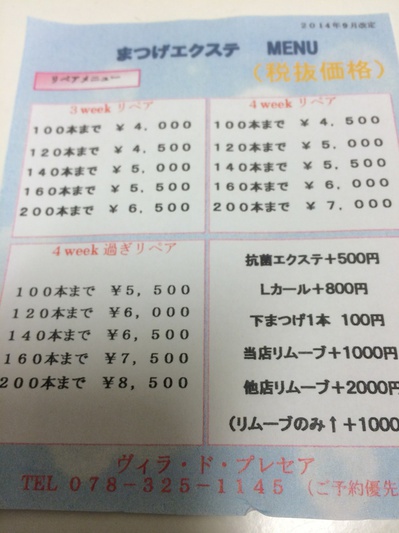 2014年9月改定
まつげエクステ MENU
(税抜価格)
リペアメニュー
3week リペア
100本まで ¥4,000
120本まで ¥4,500
140本まで ¥5,000
160本まで ¥5,500
200本まで ¥6,500
4week リペア
100本まで ¥4,500
120本まで ¥5,000
140本まで ¥5,500
160本まで ¥6,000
200本まで ¥7,000
4week 過ぎリペア
100本まで ¥5,500
120本まで ¥6,000
140本まで ¥6,500
160本まで ¥7,500
200本まで ¥8,500
抗菌エクステ+500円
Lカール+800円
下まつげ1本 100円
当店リムーブ+1000円
他店リムーブ+2000円
(リムーブのみ↑+1000
ヴィラ・ド・プレセア
TEL 078-325-1145 (ご予約優先